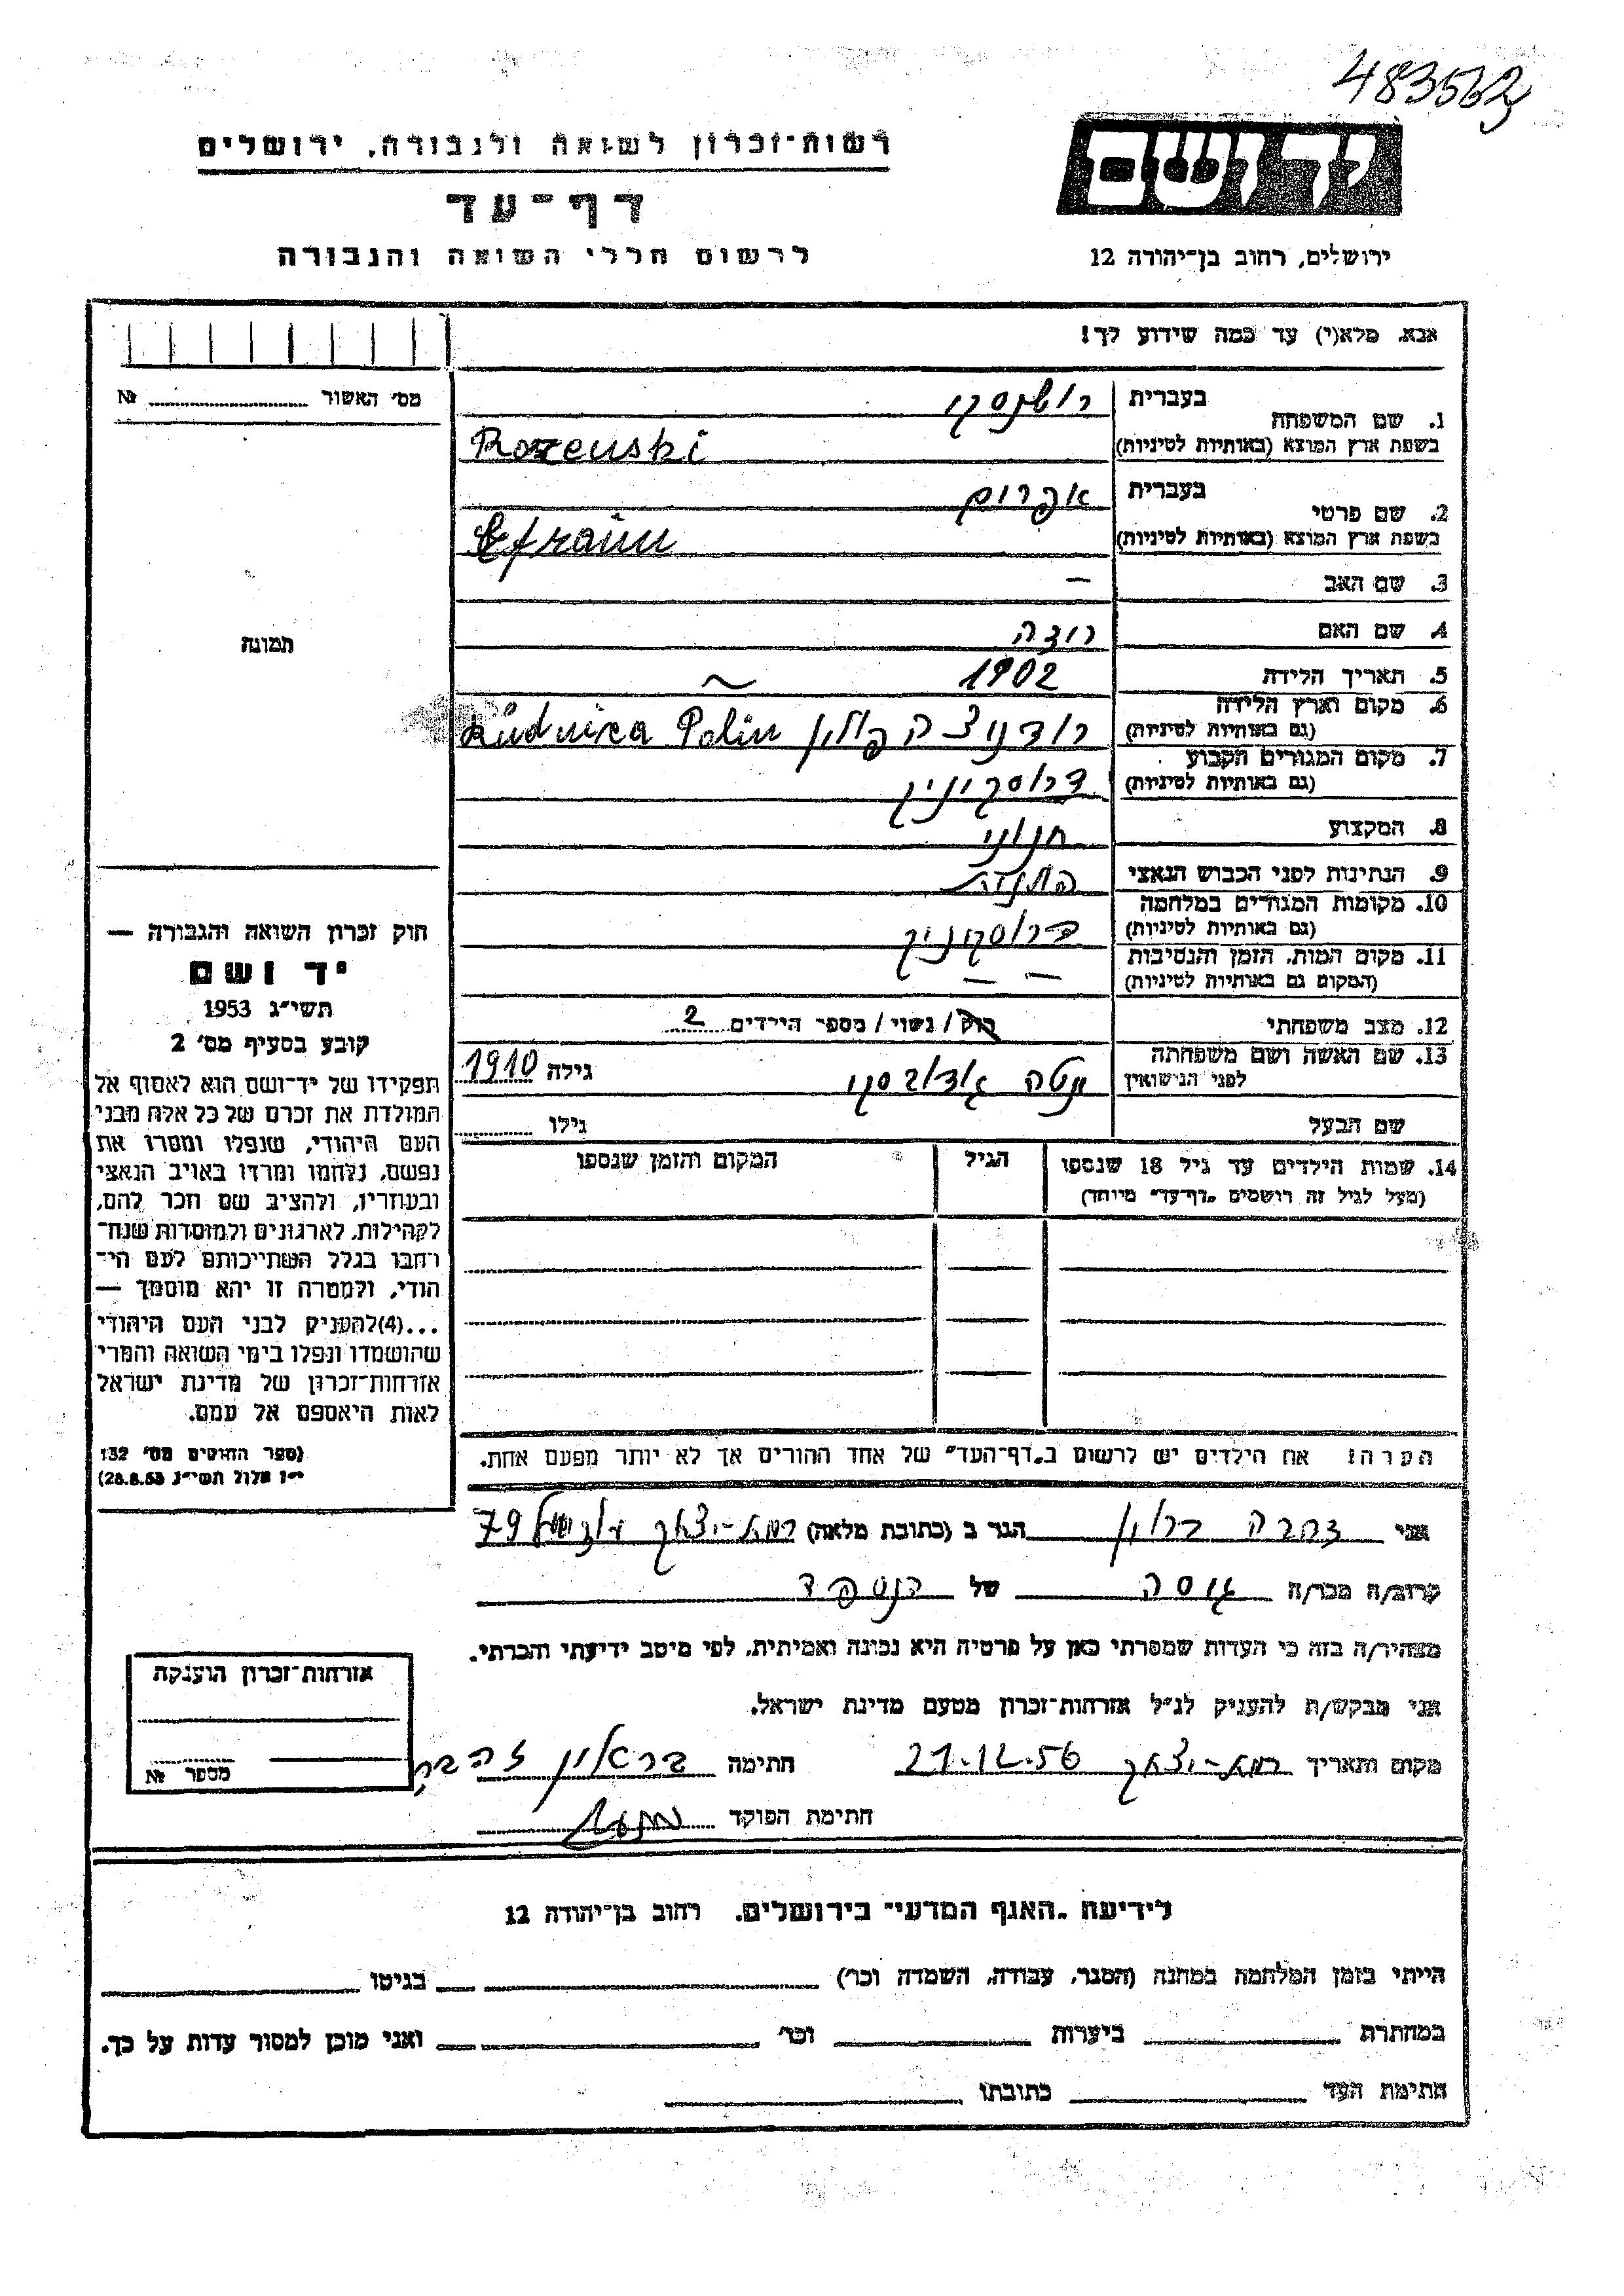 483562
רשות-זכרון לשואה ולגבורה, ירושלים
דף-עד
לרשום חללי השואה והגבורה
יד ושם
ירושלים, רחוב בן-יהודה 12
אנא, מלא(י) עד כמה שידוע לך!
מס' האשור № 
תמונה
1. שם המשפחה בעברית
בשפת ארץ המוצא (באותיות לטיניות) Rozenski
2. שם פרטי בעברית אפרים
בשפת ארץ המוצא (באותיות לטיניות) Efraim
3. שם האב —
4. שם האם
5. תאריך הלידה 1902
6. מקום וארץ הלידה רודניצה פולין Rudnica Polin
(גם באותיות לטיניות)
7. מקום המגורים הקבוע דרוסקיניק
(גם באותיות לטיניות)
8. המקצוע חנוני
9. הנתינות לפני הכבוש הנאצי
10. מקומות המגורים במלחמה דרוסקיניק
(גם באותיות לטיניות)
11. מקום המות, הזמן והנסיבות — —
(המקום גם באותיות לטיניות)
12. מצב משפחתי רוק / נשוי / מספר הילדים 2
13. שם האשה ושם משפחתה
לפני הנישואין גילה 1910
שם הבעל גילו
14. שמות הילדים עד גיל 18 שנספו הגיל המקום והזמן שנספו
(מעל לגיל זה רושמים "דף-עד" מיוחד)
הערה! את הילדים יש לרשום ב"דף-העד" של אחד ההורים אך לא יותר מפעם אחת.
חוק זכרון השואה והגבורה —
יד ושם
תשי"ג 1953
קובע בסעיף מס' 2
תפקידו של יד-ושם הוא לאסוף אל
המולדת את זכרם של כל אלה מבני
העם היהודי, שנפלו ומסרו את
נפשם, נלחמו ומרדו באויב הנאצי
ובעוזריו, ולהציב שם וזכר להם,
לקהילות, לארגונים ולמוסדות שנח-
רבו בגלל השתייכותם לעם הי-
הודי, ולמטרה זו יהא מוסמך —
...(4)להעניק לבני העם היהודי
שהושמדו ונפלו בימי השואה והמרי
אזרחות-זכרון של מדינת ישראל
לאות היאספם אל עמם.
(ספר החוקים מס' 132
י"ז אלול תשי"ג 28.8.53)
אני זהבה הגר ב (כתובת מלאה) רמת-יצחק 79
קרוב/ה מכר/ה גיסה של הנספה
מצהיר/ה בזה כי העדות שמסרתי כאן על פרטיה היא נכונה ואמיתית, לפי מיטב ידיעתי והכרתי.
אני מבקש/ת להעניק לנ"ל אזרחות-זכרון מטעם מדינת ישראל.
מקום ותאריך רמת-יצחק 21.12.56 חתימה בראון זהבה
חתימת הפוקד
אזרחות-זכרון הוענקה
מספר №
לידיעת "האגף המדעי" בירושלים, רחוב בן-יהודה 12
הייתי בזמן המלחמה במחנה (הסגר, עבודה, השמדה וכו') בגיטו
במחתרת ביערות וכו' ואני מוכן למסור עדות על כך.
חתימת העד כתובתו